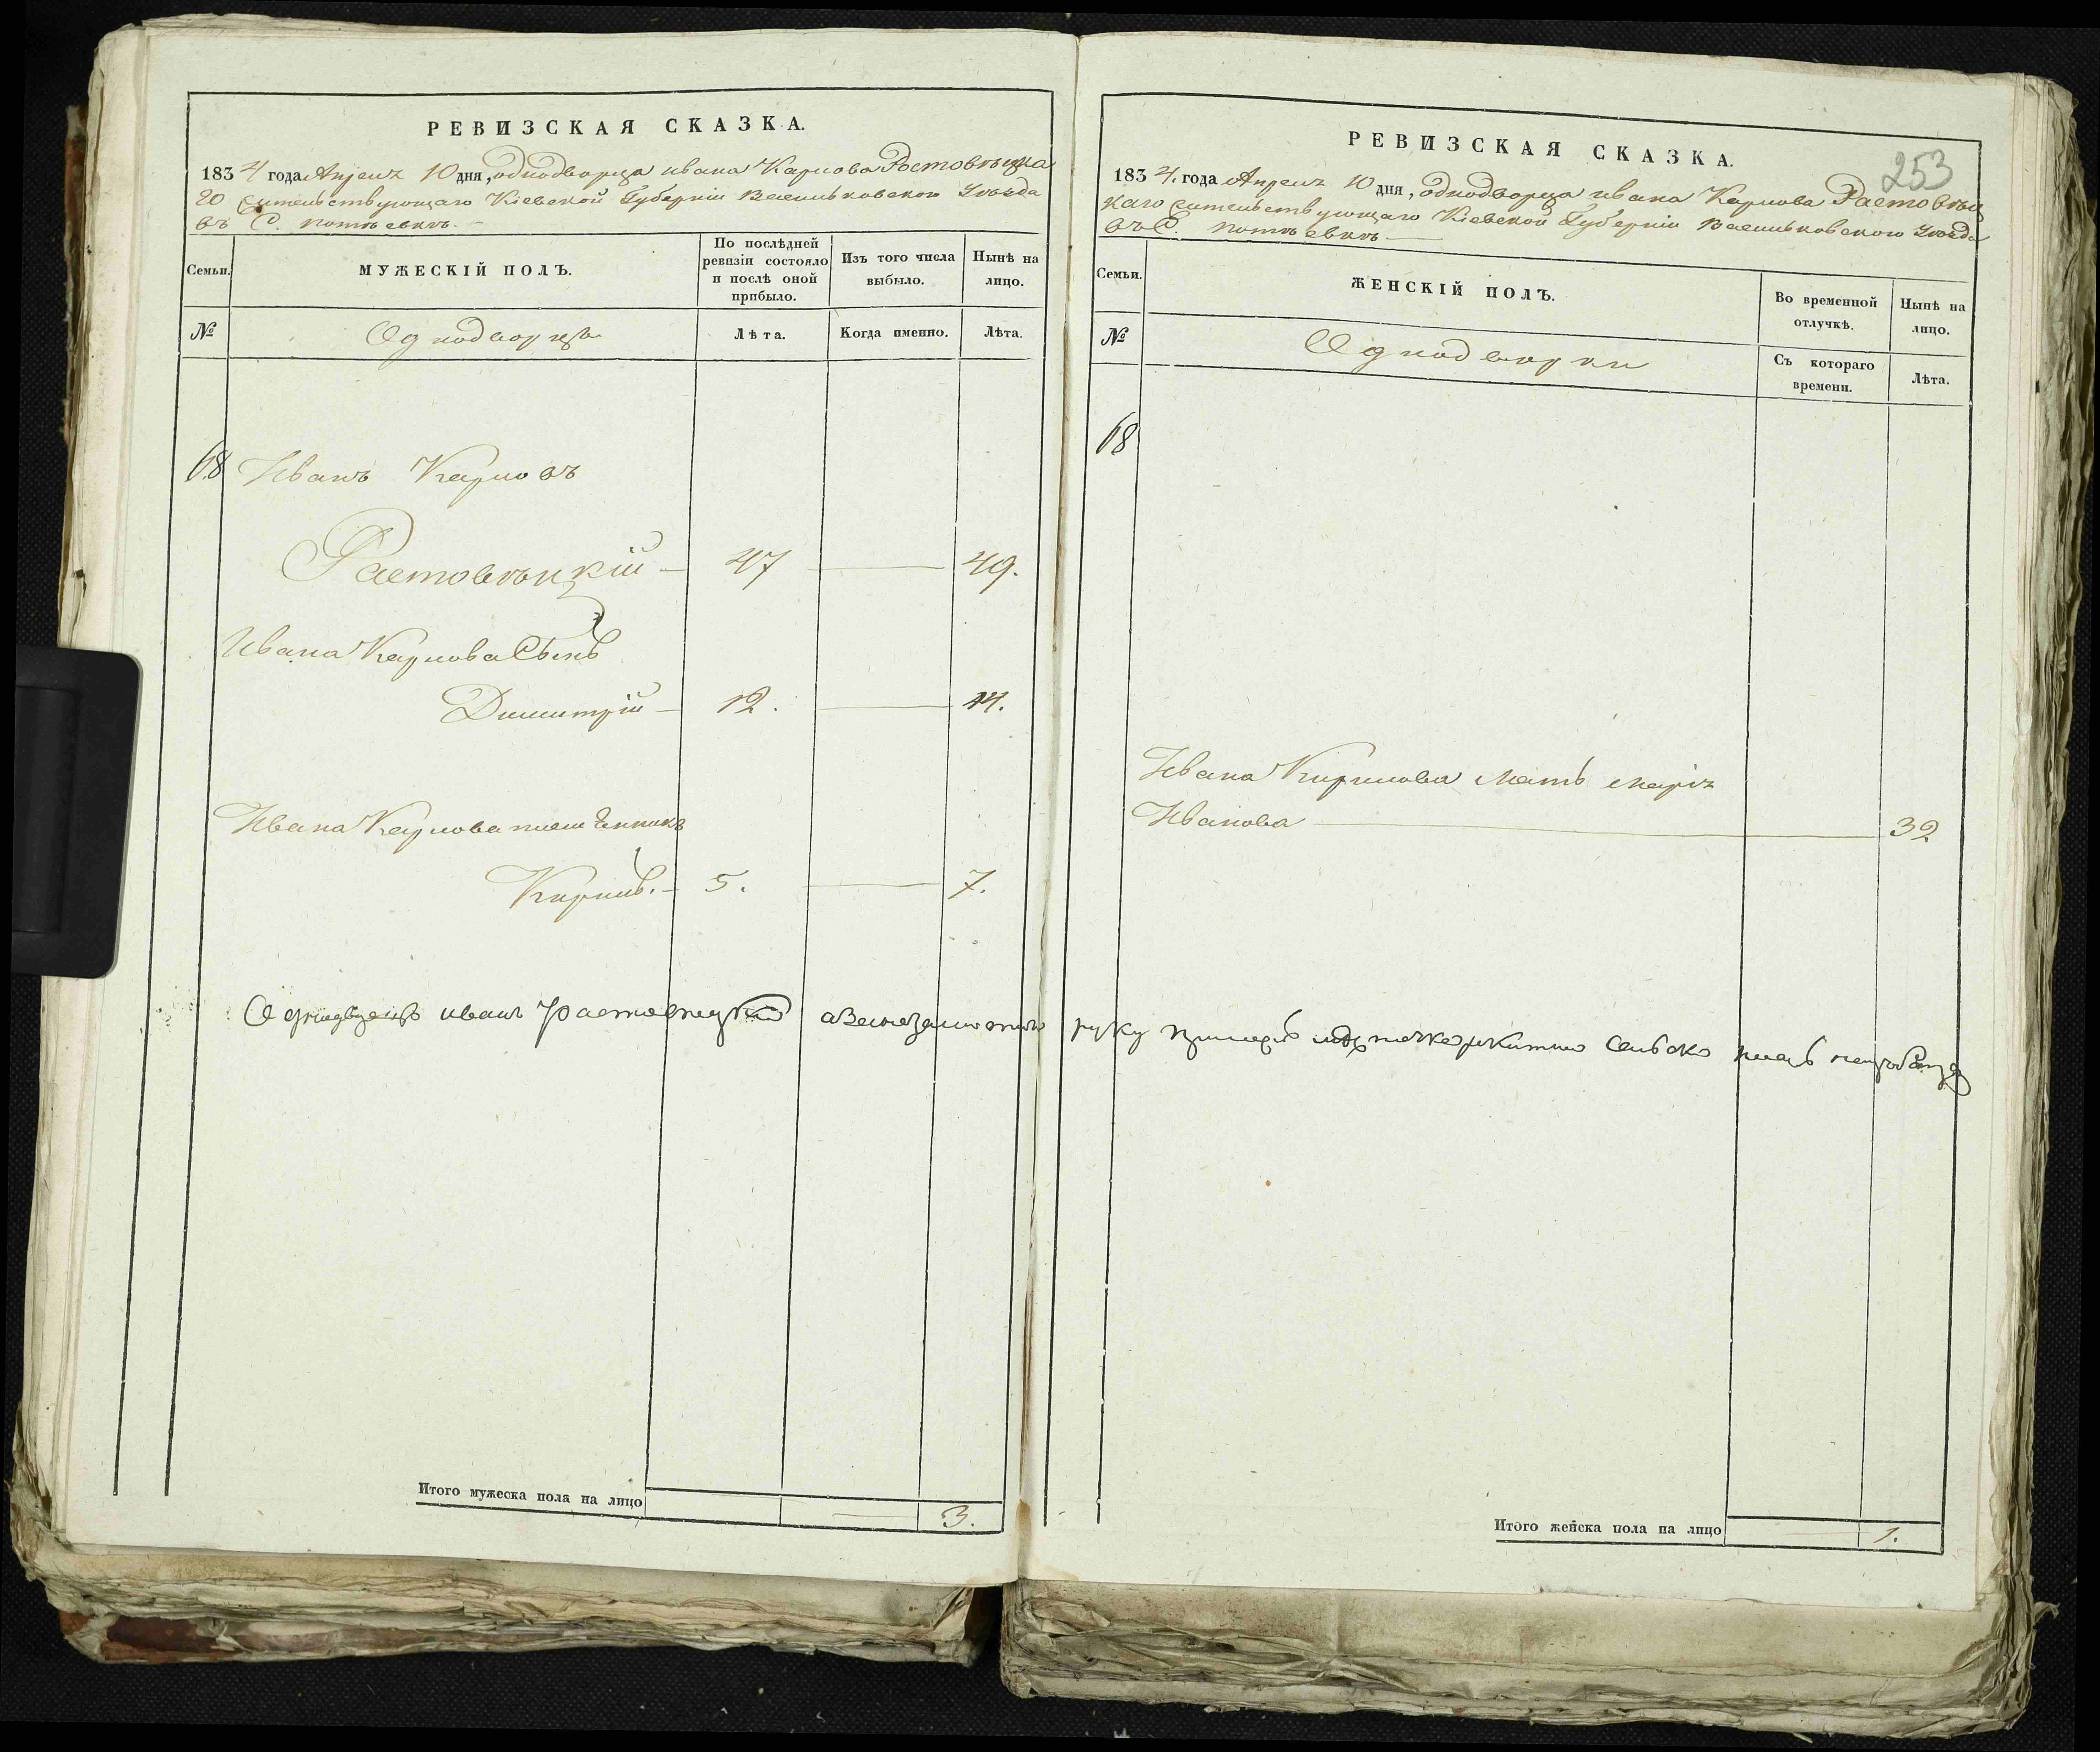 РЕВИЗСКАЯ СКАЗКА.
1834 года Апреля 10 дня, однодворца ивана Карпова Ростовецка
го жительствующаго Кіевской Губерніи Васильковского Уѣзда
въ С. потіевкѣ.
Семьи.
МУЖЕСКІЙ ПОЛЪ.
По послѣдней ревизіи состояло и послѣ оной прибыло.
Изъ того числа выбыло.
Нынѣ на лицо.
№
Однодворцы
Лѣта.
Когда именно.
Лѣта.
68 Иванъ Карповъ
Растовецкій 47 49.
Ивана Карпова Сынъ
Димитрій 12. 14.
Ивана Карпова племянникъ
5. 7.
Однодворецъ иванъ Растовецкий а занего руку
Итого мужеска пола на лицо 3.
РЕВИЗСКАЯ СКАЗКА.
253
1834. года Апреля 10 дня, однодворца ивана Карпова Растовец
каго жительствующаго Кіевской Губерніи Васильковского Уѣзда
въ С. потіевкѣ
Семьи.
ЖЕНСКІЙ ПОЛЪ.
Во временной отлучкѣ.
Нынѣ на лицо.
№
Однодворки
Съ котораго времени.
Лѣта.
68
Ивана Кирилова мать марія
Иванова 32
Итого женска пола на лицо 1.